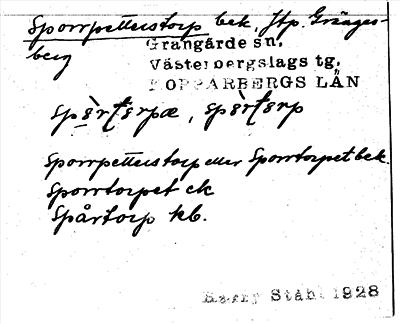 Sporrpetterstorp bek, Jtp. Gränges-
berg
Grangärde sn,
Västerbergslags tg,
KOPPARBERGS LÄN
Sporrpetterstorp eller Sporrtorpet bek.
Sporrtorpet ek
Spårtorp kb.
Harry Ståhl 1928